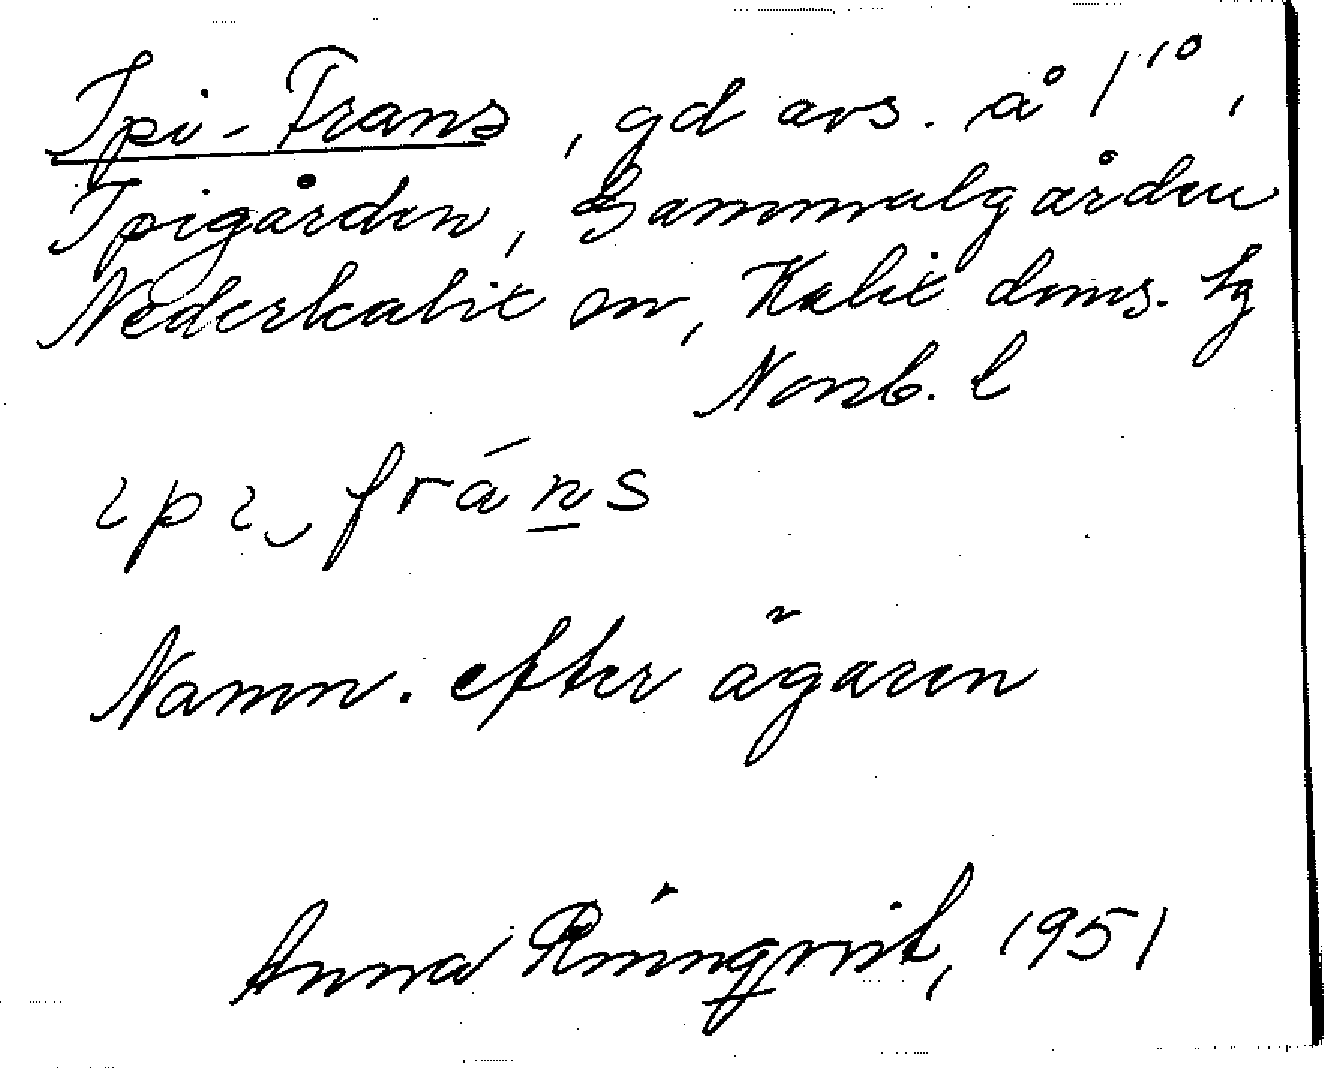 Ipi-Frans, gd avs. å 1¹⁰,
Ipigården, Gammalgården
Nederkalix sn, Kalix doms. tg
Norrb. l
ɩpɩ‿fráns
Namn. efter ägaren
Anna Rönnqvist, 1951